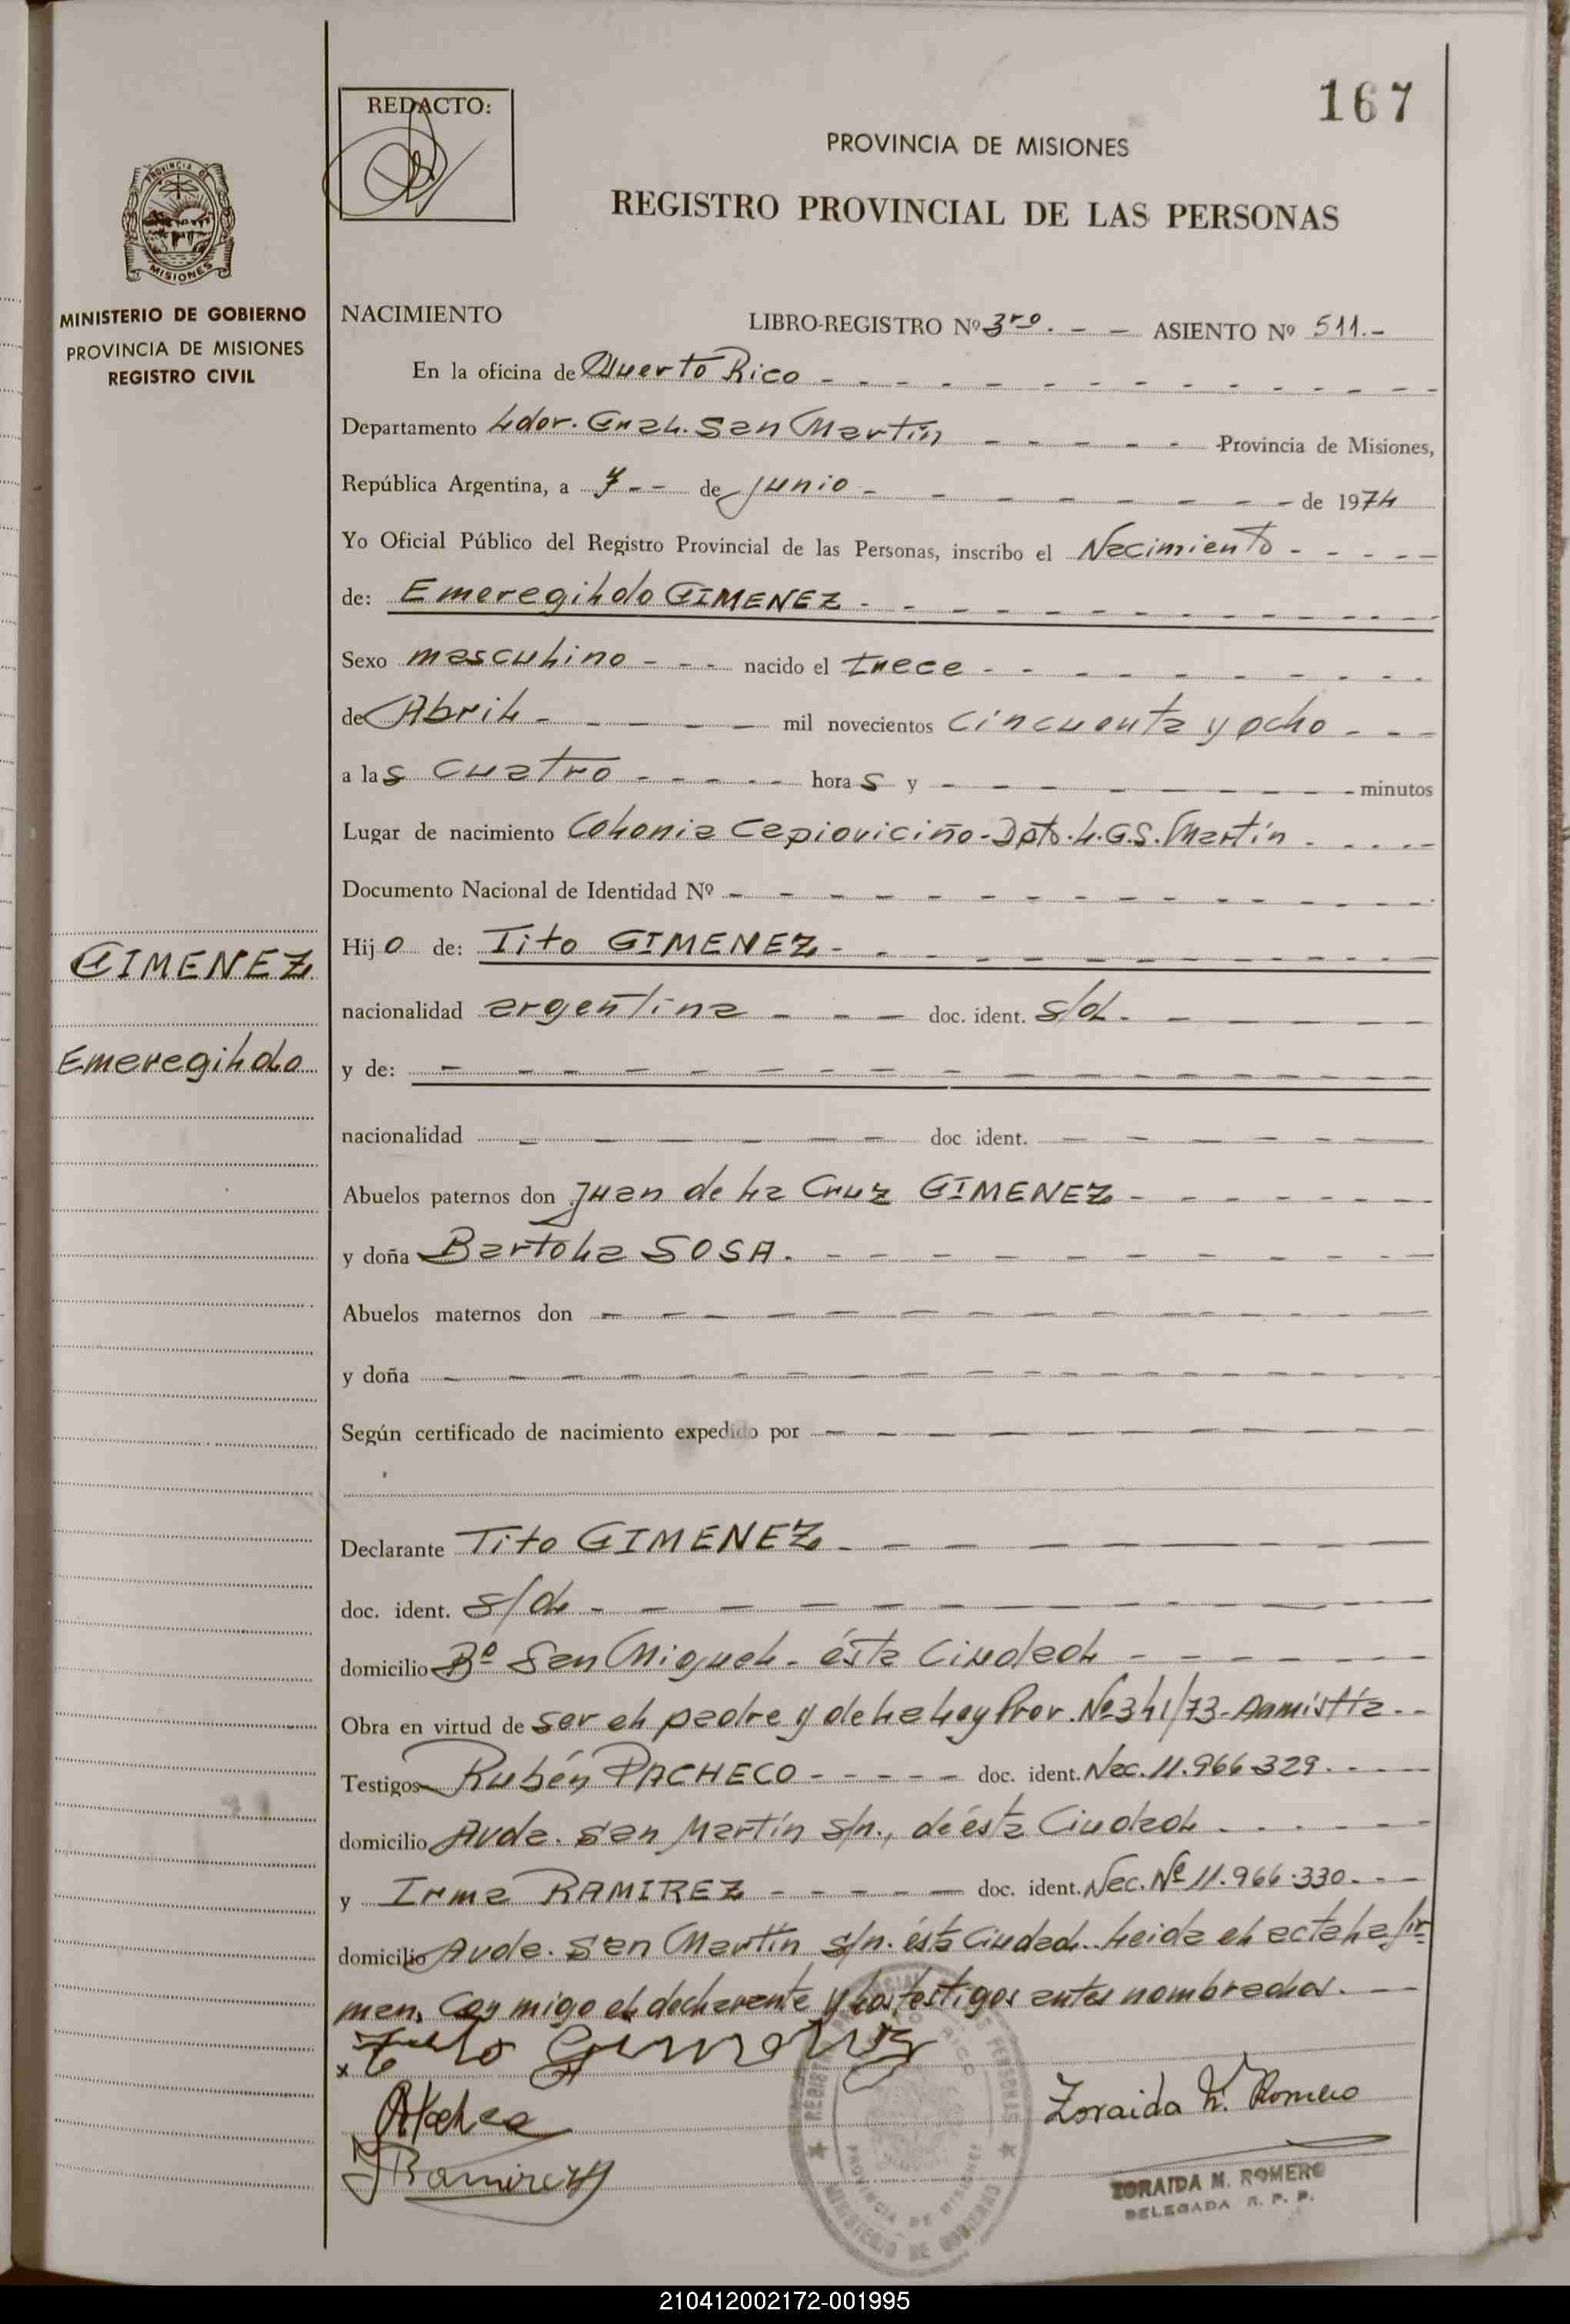 167
REDACTO:
PROVINCIA DE MISIONES
REGISTRO PROVINCIAL DE LAS PERSONAS
PROVINCIA DE
MISIONES
MINISTERIO DE GOBIERNO
PROVINCIA DE MISIONES
REGISTRO CIVIL
NACIMIENTO LIBRO-REGISTRO Nº 3ro. - - ASIENTO Nº 511.-
En la oficina de Puerto Rico
Departamento Ldor. Gral. San Martín - Provincia de Misiones,
República Argentina, a 7 - - de junio - de 1974
Yo Oficial Público del Registro Provincial de las Personas, inscribo el Nacimiento
de: Emeregildo GIMENEZ
Sexo masculino - - - nacido el trece
de Abril - mil novecientos cincuenta y ocho
a las cuatro - horas y - minutos
Lugar de nacimiento Colonia Capioviciño-Dpto.L.G.S.Martín
Documento Nacional de Identidad Nº -
GIMENEZ
Emeregildo
Hijo de: Tito GIMENEZ
nacionalidad argentina - - - doc. ident. s/d.
y de: -
nacionalidad - doc ident. -
Abuelos paternos don Juan de la Cruz GIMENEZ
y doña Bartola SOSA.
Abuelos maternos don -
y doña -
Según certificado de nacimiento expedido por -
Declarante Tito GIMENEZ
doc. ident. s/d
domicilio Bº San Miguel - ésta Ciudad
Obra en virtud de ser el padre y de la Ley Prov. Nº 341/73-Anmistía
Testigos Rubén PACHECO - doc. ident. Nac. 11.966.329.
domicilio Avda. San Martín s/n., de ésta Ciudad
y Irma RAMIREZ - doc. ident. Nac. Nº 11.966.330
domicilio Avda. San Martín s/n. ésta Ciudad. Leida el acta la fir
man, con migo el declarante y los testigos antes nombrados.
x Tito Gimenez
RPacheco
IRamirez
Zoraida M. Romero
ZORAIDA M. ROMERO
DELEGADA R. P. P.
REGISTRO PROVINCIAL DE LAS PERSONAS
PUERTO RICO
PROVINCIA DE MISIONES
MINISTERIO DE GOBIERNO
210412002172-001995